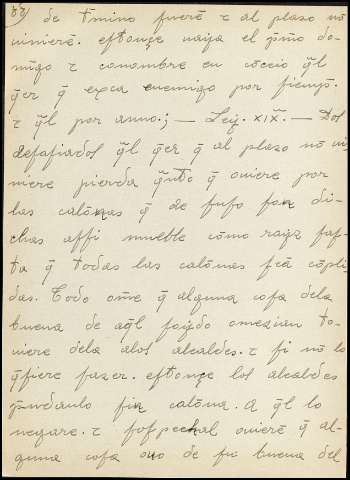 de t̃mino fuerẽ τ al plazo nõ
uinierẽ. eſtonçe uaẏa el p̃mo do-
mĩgo τ connombre en cõceio q̃l
q̃er q̃ exca enemigo por ſiemp̃.
τ q̃l por anno.; — Leẏ. XIX. — Dos
deſafiados q̃l q̃er q̃ al plazo nõ ui
niere pierda q̃nto q̃ ouiere por
las calõnas q̃ de ſuſo ſon di-
chas aſſi mueble cõmo raiz faſ-
ta q̃ todas las calõnas ſeã cõpli-
das. Todo om̃e q̃ alguna coſa dela
buena de aq̃l foẏdo omezian to-
uiere dela alos alcaldes. τ ſi nõ lo
q̃ſiere fazer. eſtonçe los alcaldes
p̃ndanlo ſin calõna. A q̃l lo
negare. τ ſoſpechal ouierẽ q̃ al-
guna coſa ouo de ſu buena del